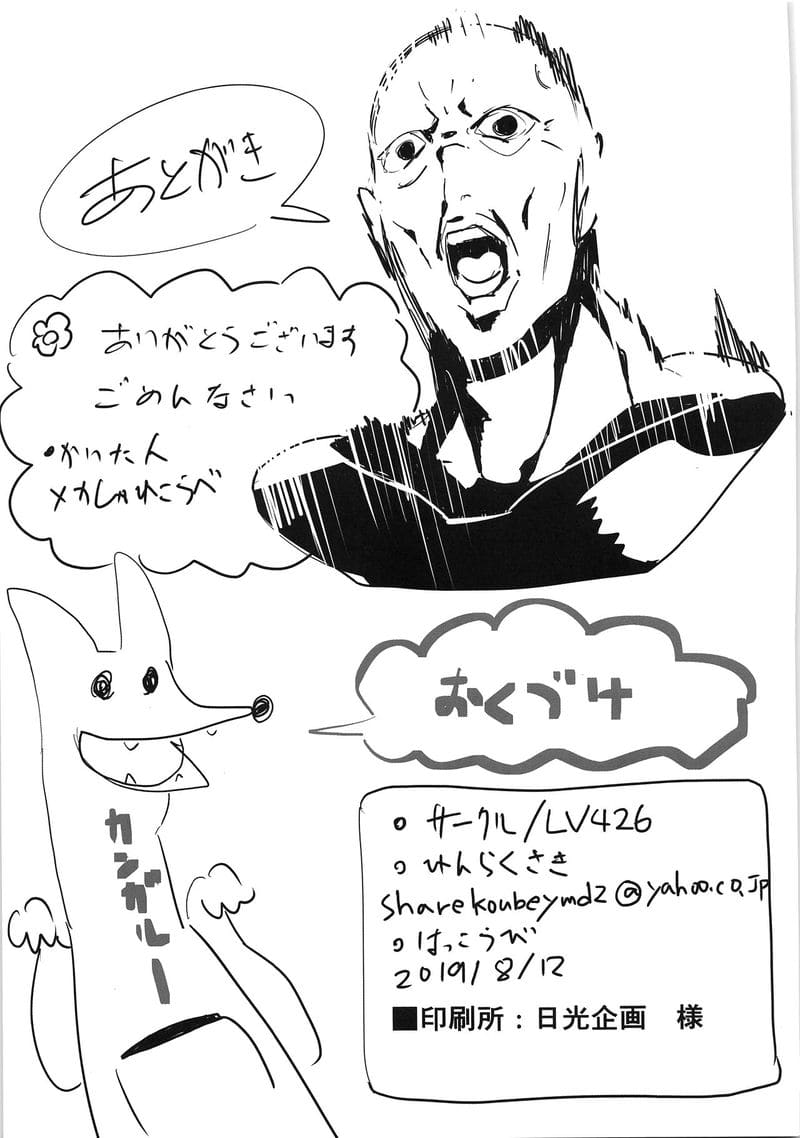 あとがき
ありがとうございます
ごめんなさいっ
・かいた人
メカしゃれこうべ
おくづけ
カンガルー
○サークル/LV426
○れんらくさき
sharekoubeymdz@yahoo.co.jp
○はっこうび
2019/8/12
■印刷所：日光企画　様